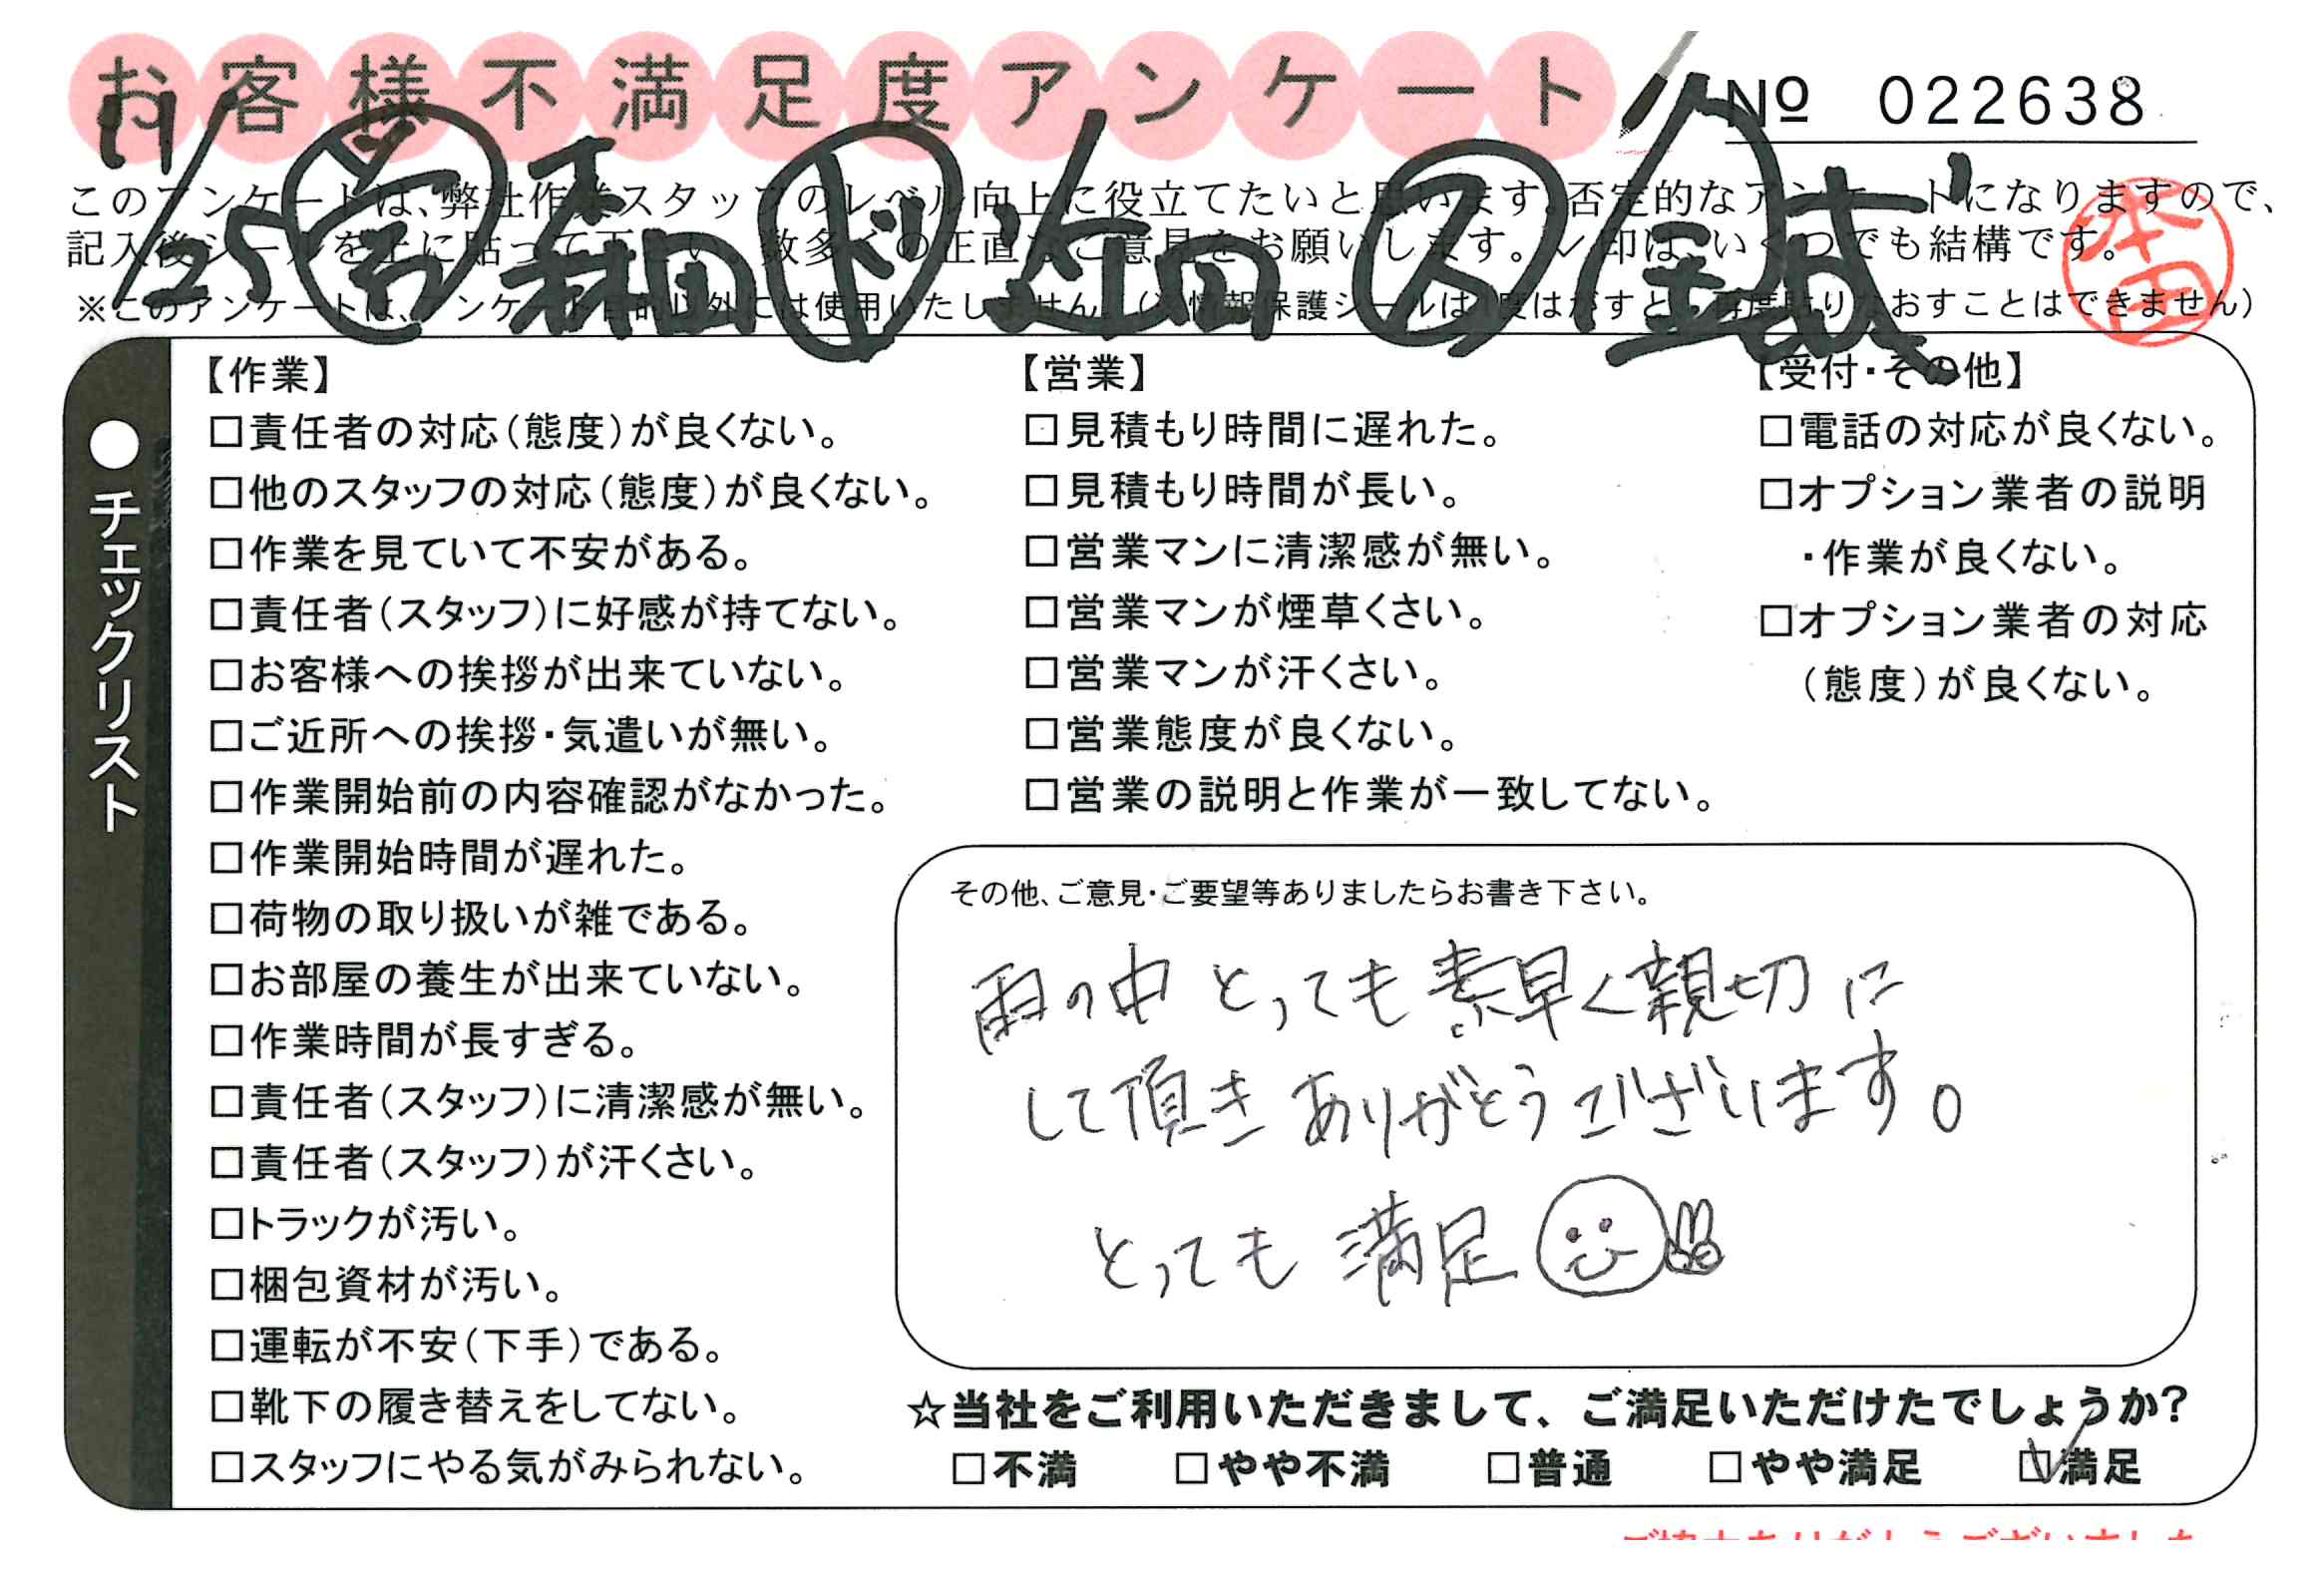 お客様不満足度アンケート
№ 022638
11/25 営 森田 ド 近田 ス 金城
本田
このアンケートは、弊社作業スタッフのレベル向上に役立てたいと思います。否定的なアンケートになりますので、
記入後シールを上に貼って下さい。数多くの正直なご意見をお願いします。✓印は、いくつでも結構です。
※このアンケートは、アンケート目的以外には使用いたしません。(※情報保護シールは1度はがすと、再度貼りなおすことはできません)
●チェックリスト
【作業】
□責任者の対応(態度)が良くない。
□他のスタッフの対応(態度)が良くない。
□作業を見ていて不安がある。
□責任者(スタッフ)に好感が持てない。
□お客様への挨拶が出来ていない。
□ご近所への挨拶・気遣いが無い。
□作業開始前の内容確認がなかった。
□作業開始時間が遅れた。
□荷物の取り扱いが雑である。
□お部屋の養生が出来ていない。
□作業時間が長すぎる。
□責任者(スタッフ)に清潔感が無い。
□責任者(スタッフ)が汗くさい。
□トラックが汚い。
□梱包資材が汚い。
□運転が不安(下手)である。
□靴下の履き替えをしてない。
□スタッフにやる気がみられない。
【営業】
□見積もり時間に遅れた。
□見積もり時間が長い。
□営業マンに清潔感が無い。
□営業マンが煙草くさい。
□営業マンが汗くさい。
□営業態度が良くない。
□営業の説明と作業が一致してない。
【受付・その他】
□電話の対応が良くない。
□オプション業者の説明
・作業が良くない。
□オプション業者の対応
(態度)が良くない。
その他、ご意見・ご要望等ありましたらお書き下さい。
雨の中 とっても 素早く親切に
して頂き ありがとうございます。
とっても 満足
☆当社をご利用いただきまして、ご満足いただけたでしょうか?
□不満 □やや不満 □普通 □やや満足 ☑満足
ご協力ありがとうございました